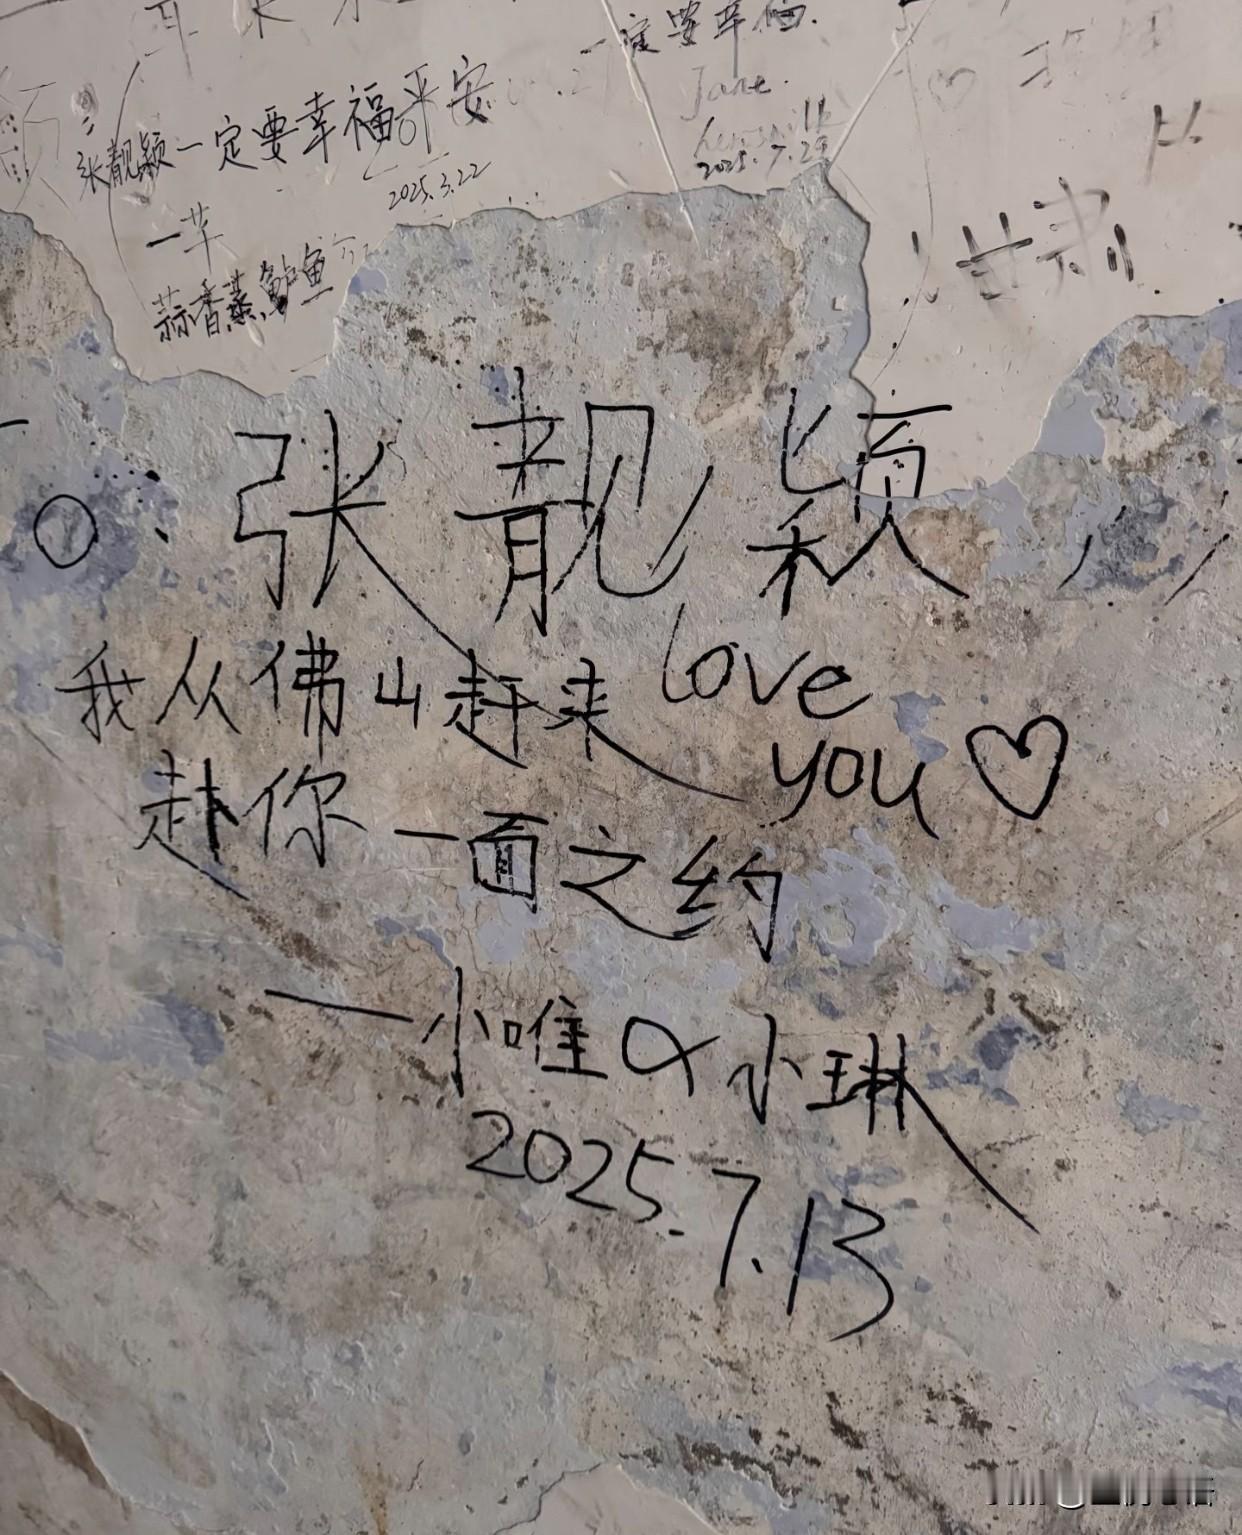 一定要幸福.
Jane.
2025.7.29
张靓颖一定要幸福平安
2025.3.22
一芊
蒜香蒸鲈鱼
甘肃
To:张靓颖
我从佛山赶来 love
you♡
赴你一面之约
—小唯 & 小琳
2025.7.13